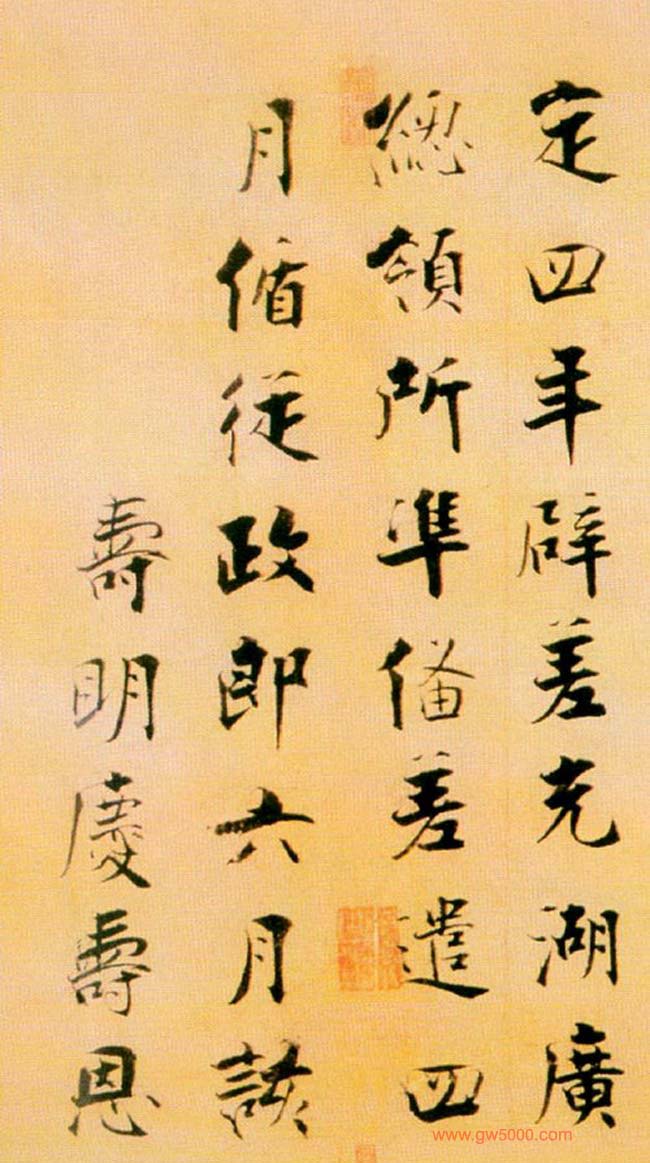 定四年辟差充湖廣
總領所準備差遣四
月循從政郎六月該
壽明慶壽恩
www.gw5000.com